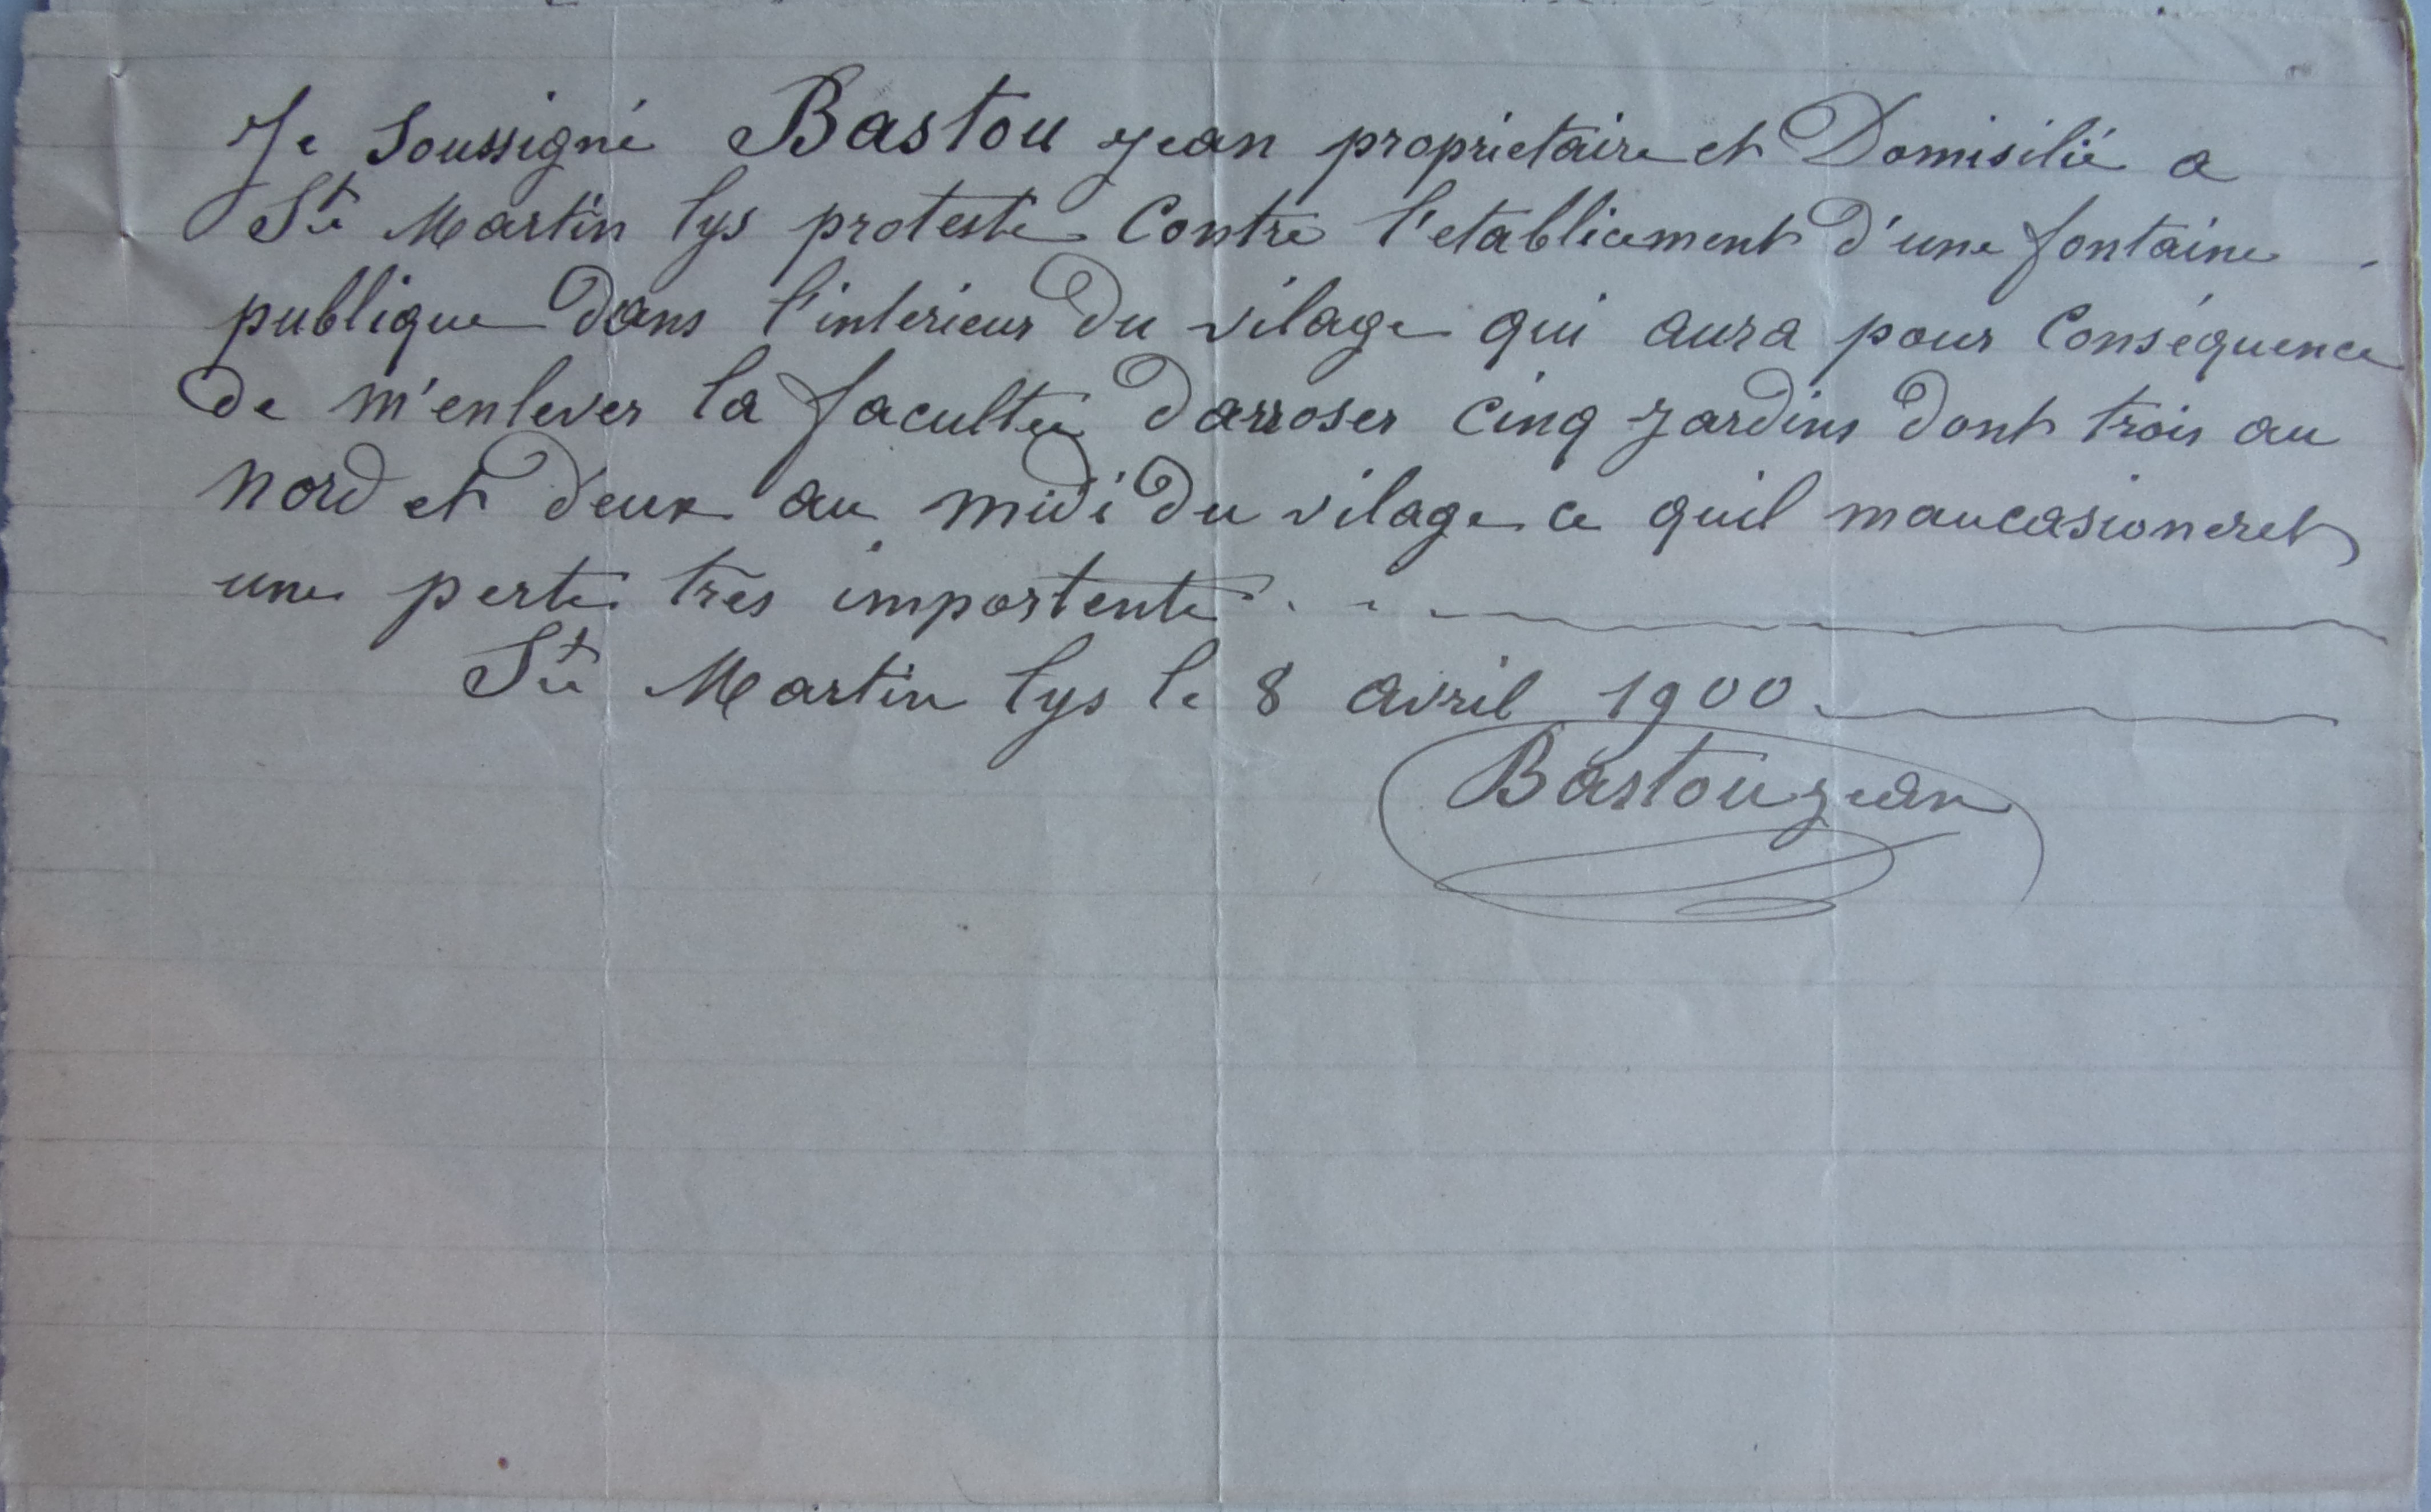 Je Soussigné Bastou Jean proprietaire et Domisilié a
Ste Martin lys proteste Contre l'etablicement d'une fontaine
publique dans l'interieur du vilage qui aura pour Conséquence
de m'enlever la facultée darroser Cinq Jardins dont trois au
nord et deux au midi du vilage ce quil maucasioneret
une perte tres importente
Ste Martin lys le 8 avril 1900
Bastou jean